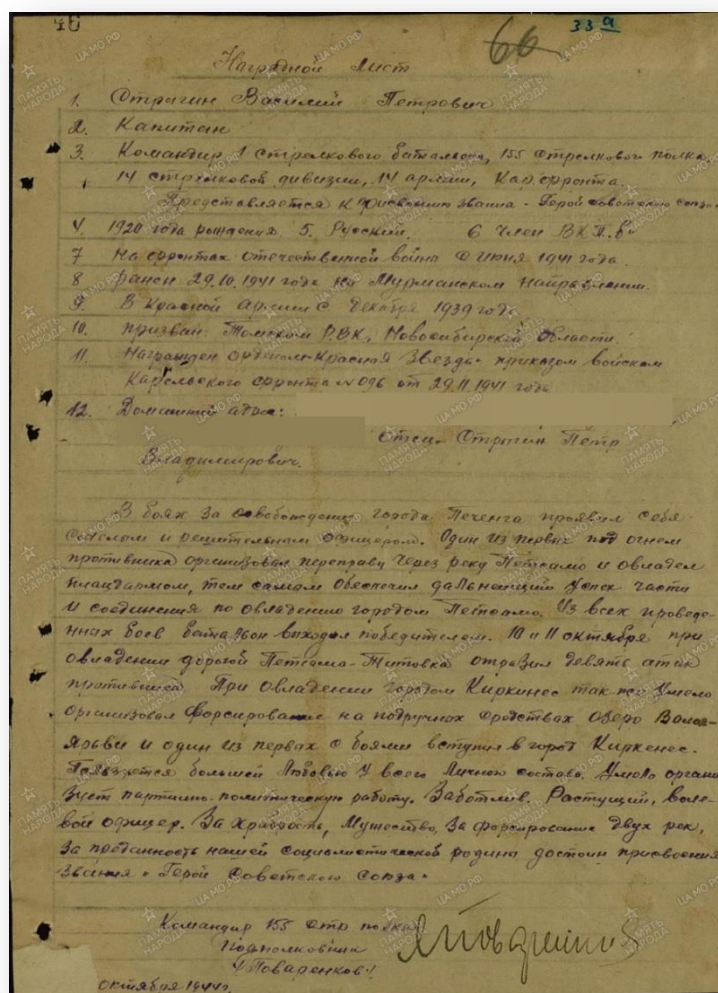 33 а
66
Наградной лист
1. Стрыгин Василий Петрович
2. Капитан
3. Командир 1 стрелкового батальона, 155 стрелкового полка,
14 стрелковой дивизии, 14 армии, Кар.фронта.
Представляется к присвоению звания - Герой Советского Союза
4. 1920 года рождения 5. Русский. 6 Член ВКП.б-
7 На фронтах отечественной войны с июня 1941 года.
8 Ранен 29.10.1941 года на Мурманском направлении.
9. В Красной армии с декабря 1939 года
10. Призван: Томским Р.В.К, Новосибирской области.
11. Награжден орденом-Красная Звезда- приказом войскам
Карельского фронта № 096 от 29.11.1941 года
12. Домашний адрес:
Отец. Стрыгин Петр
Владимирович.
В боях за освобождение города Печенга проявил себя
смелом и решительным офицером. Один из первых под огнем
противника организовал переправу через реку Петсамо и овладел
плацдармом, тем самым обеспечил дальнейший успех части
и соединения по овладению городом Петсамо. Из всех проведе-
нных боев батальон выходил победителем. 10 и 11 октября при
овладении дорогой Петсамо-Титовка отразил девять атак
противника. При овладении городом Киркинес так-же умело
организовал форсирование на подручных средствах озеро
и один из первых с боями вступил в город Киркенес.
Пользуется большой любовью у всего личного состава. Умело органи
зует партийно-политическую работу. Заботлив. Растущий, воле-
вой офицер. За храбрость, мужество, за форсирование двух рек,
за преданность нашей социалистической родине достоин присвоения
звания - Герой Советского Союза-
Командир 155 стр полка
Подполковник
/Поваренков/.
октября 1944г.